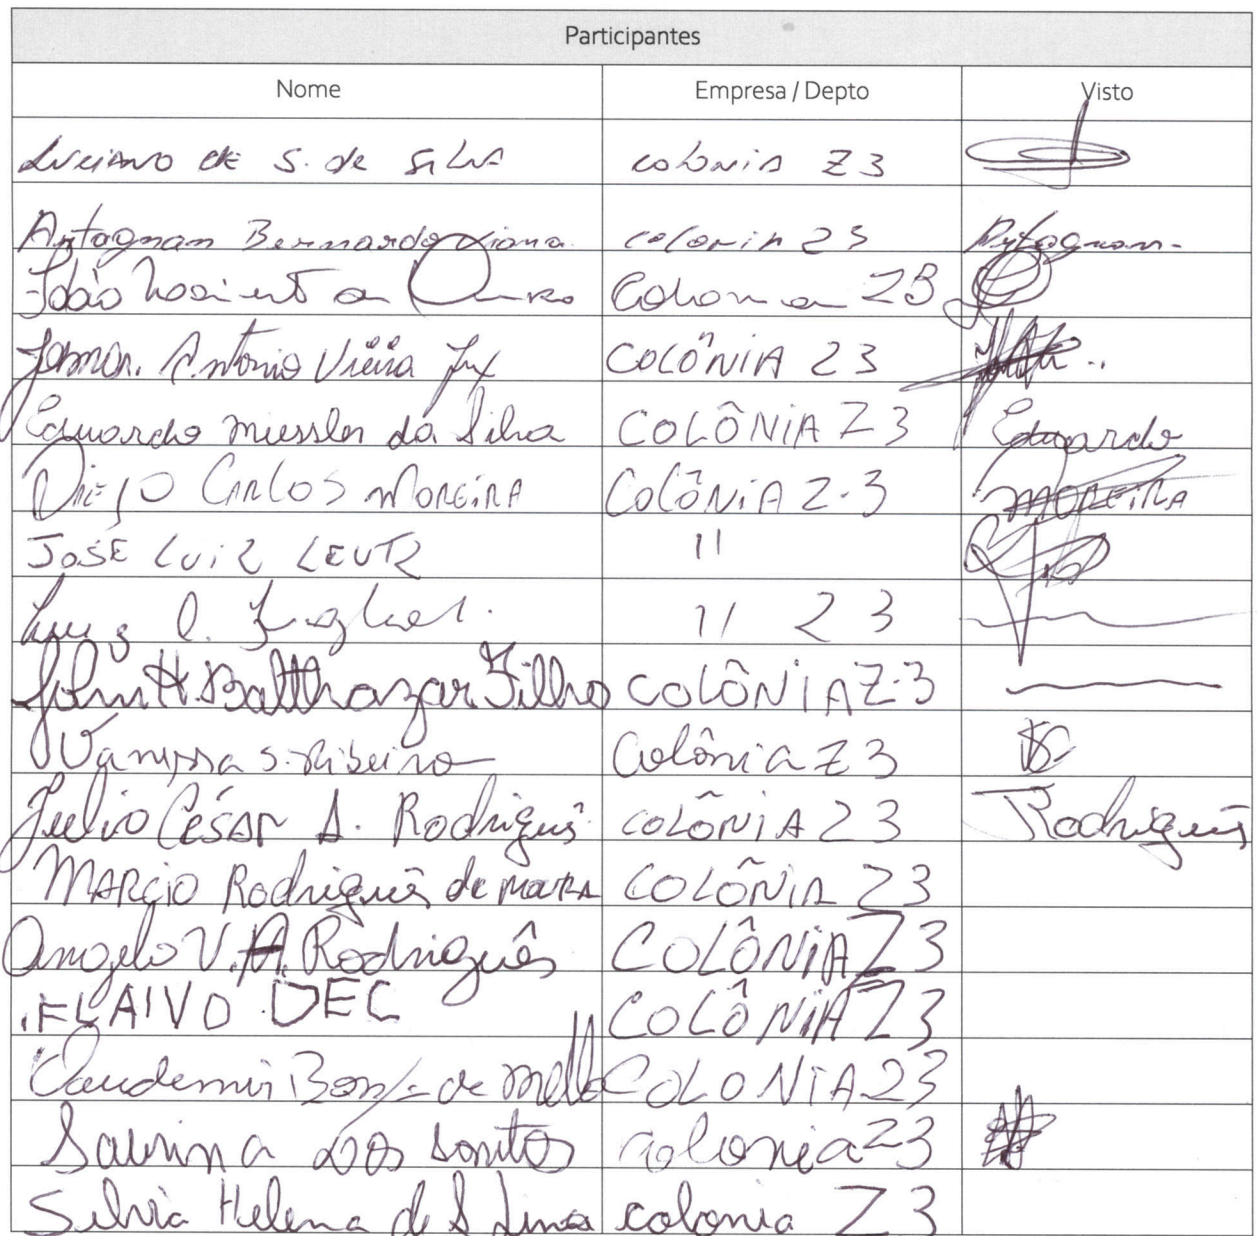 Participantes
Nome Empresa / Depto Visto
Luciano de S. de Silva colonia Z3
Artagnan Bernardo Viana colonia Z3 Artagnan
João colonia Z3
Antonio Vieira COLÔNIA Z3
Eduardo Miessler da Silva COLÔNIA Z3 Eduardo
Diego Carlos Moreira COLÔNIA Z-3 MOREIRA
JOSÉ LUIZ LEUTZ 11
Luis 11 Z3
John H. Balthazar Filho COLÔNIA Z-3
Vanessa S. Ribeiro Colônia Z3
Julio César A. Rodriguês COLÔNIA Z3 Rodriguês
MARCIO Rodriguês de COLÔNIA Z3
Angelo V. A. Rodriguês COLÔNIA Z3
FLAIVO DEC COLÔNIA Z3
de Mello COLONIA Z3
Sabrina dos Santos colonia Z3
Silvia Helena de S Lima colonia Z3